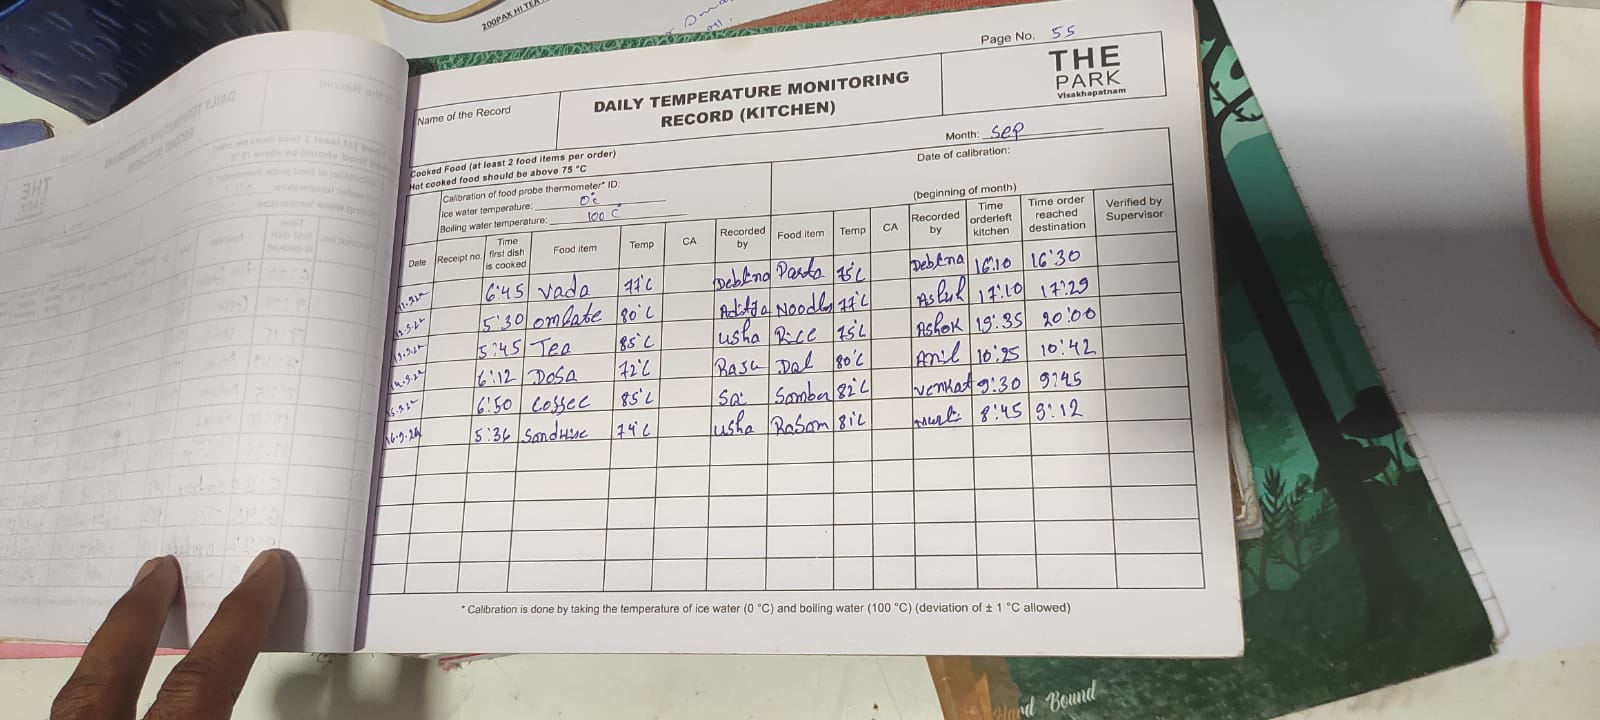 200PAX HI TEA
Page No. 55
THE
PARK
Visakhapatnam
Name of the Record
DAILY TEMPERATURE MONITORING
RECORD (KITCHEN)
Month: Sep
Cooked Food (at least 2 food items per order)
Hot cooked food should be above 75 °C
Date of calibration:
Calibration of food probe thermometer* ID:
Ice water temperature: 0°c
Boiling water temperature: 100 C
(beginning of month)
Date Receipt no. Time first dish is cooked Food item Temp CA Recorded by Food item Temp CA Recorded by Time orderleft kitchen Time order reached destination Verified by Supervisor
6:45 Vada 77°C Debkna Pasta 75°C Debkna 16:10 16:30
5:30 omlate 80°C Aditya Noodls 77°C Ashok 17:10 17:29
5:45 Tea 85°C usha Rice 75°C Ashok 19:35 20:00
6:12 Dosa 72°C Rasu Dal 80°C Anil 10:25 10:42
6:50 Coffee 85°C Sai Sambar 82°C Venkat 9:30 9:45
16.9.24 5:36 74°C usha Rasam 81°C 8:45 9:12
* Calibration is done by taking the temperature of ice water (0 °C) and boiling water (100 °C) (deviation of ± 1 °C allowed)
Hard Bound